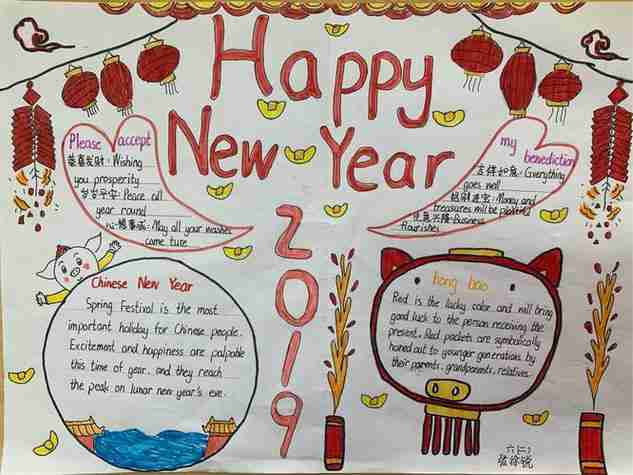 Happy
New Year
2019
Please accept
恭喜发财: Wishing
you prosperity
岁岁平安: Peace all
year round
心想事成: May all your washes
come ture
my
benediction
吉祥如意: Gverything
goes well
招财进宝: Money and
treasures mill be plentiful
生意兴隆: Business
flourishes
Chinese New Year
Spring Festival is the most
important holiday for Chinese people.
Excitement and happiness are palpable
this time of year, and they reach
the peak on lunar new year's eve.
hong bao
Red is the lucky color and mill bring
good luck to the person receiving the
present. Red packets are symbolically
haned out to younger generations by
their parents, grandparents, relatives.
六(二)